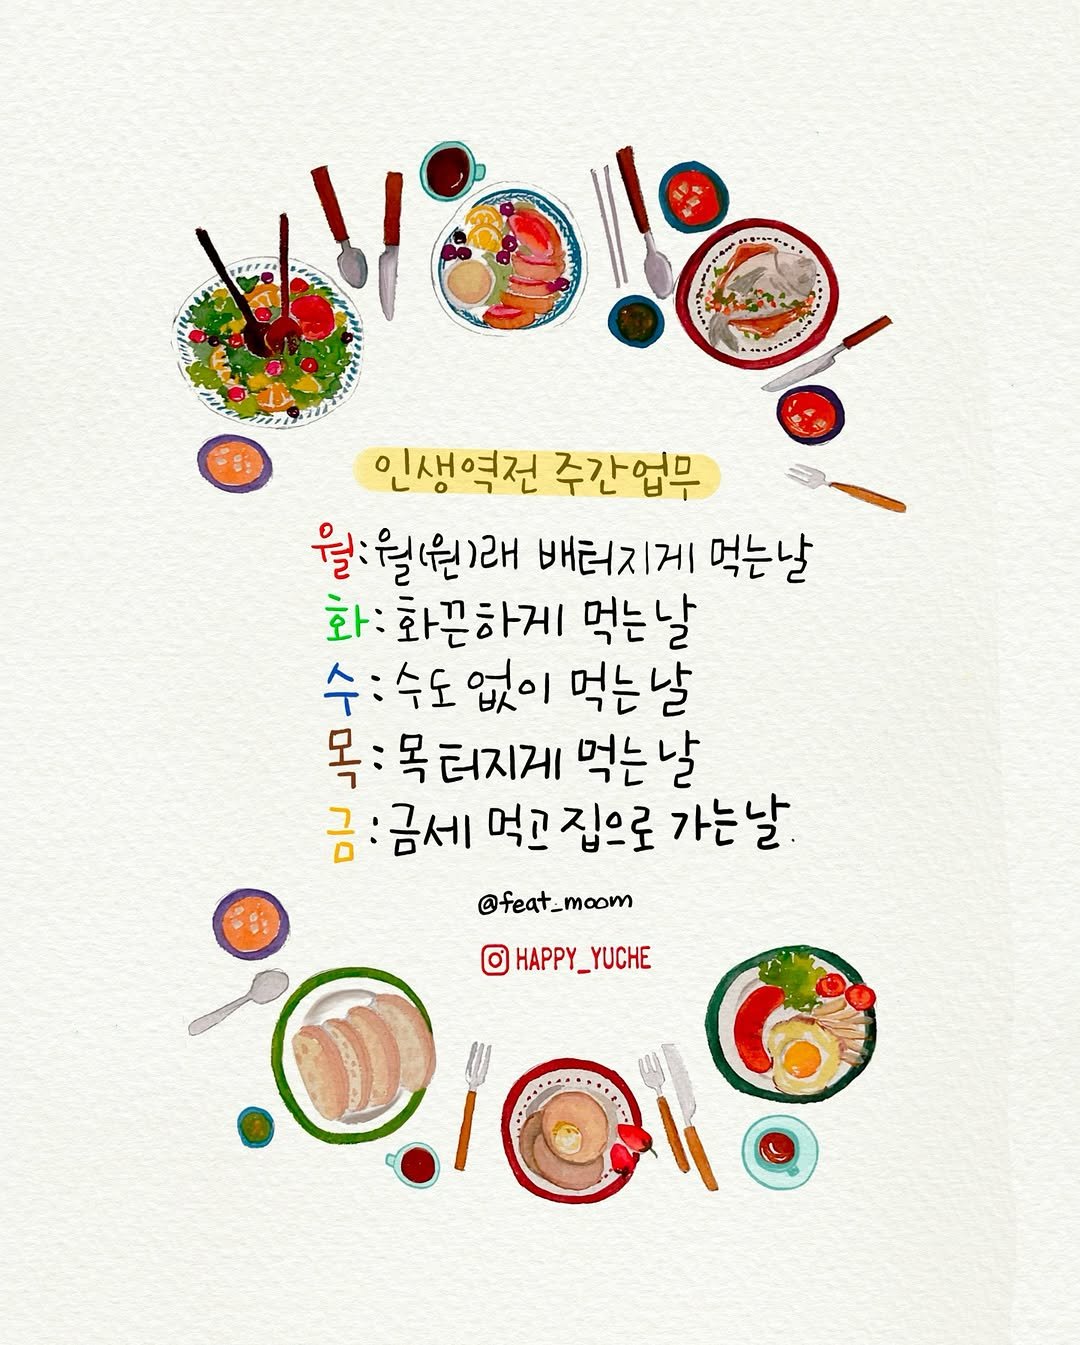 인생역전 주간업무
월:월(원)래 배터지게 먹는날
화:화끈하게 먹는날
수:수도없이 먹는날
목:목터지게 먹는날
금:금세 먹고 집으로 가는날.
@feat_moom
HAPPY_YUCHE